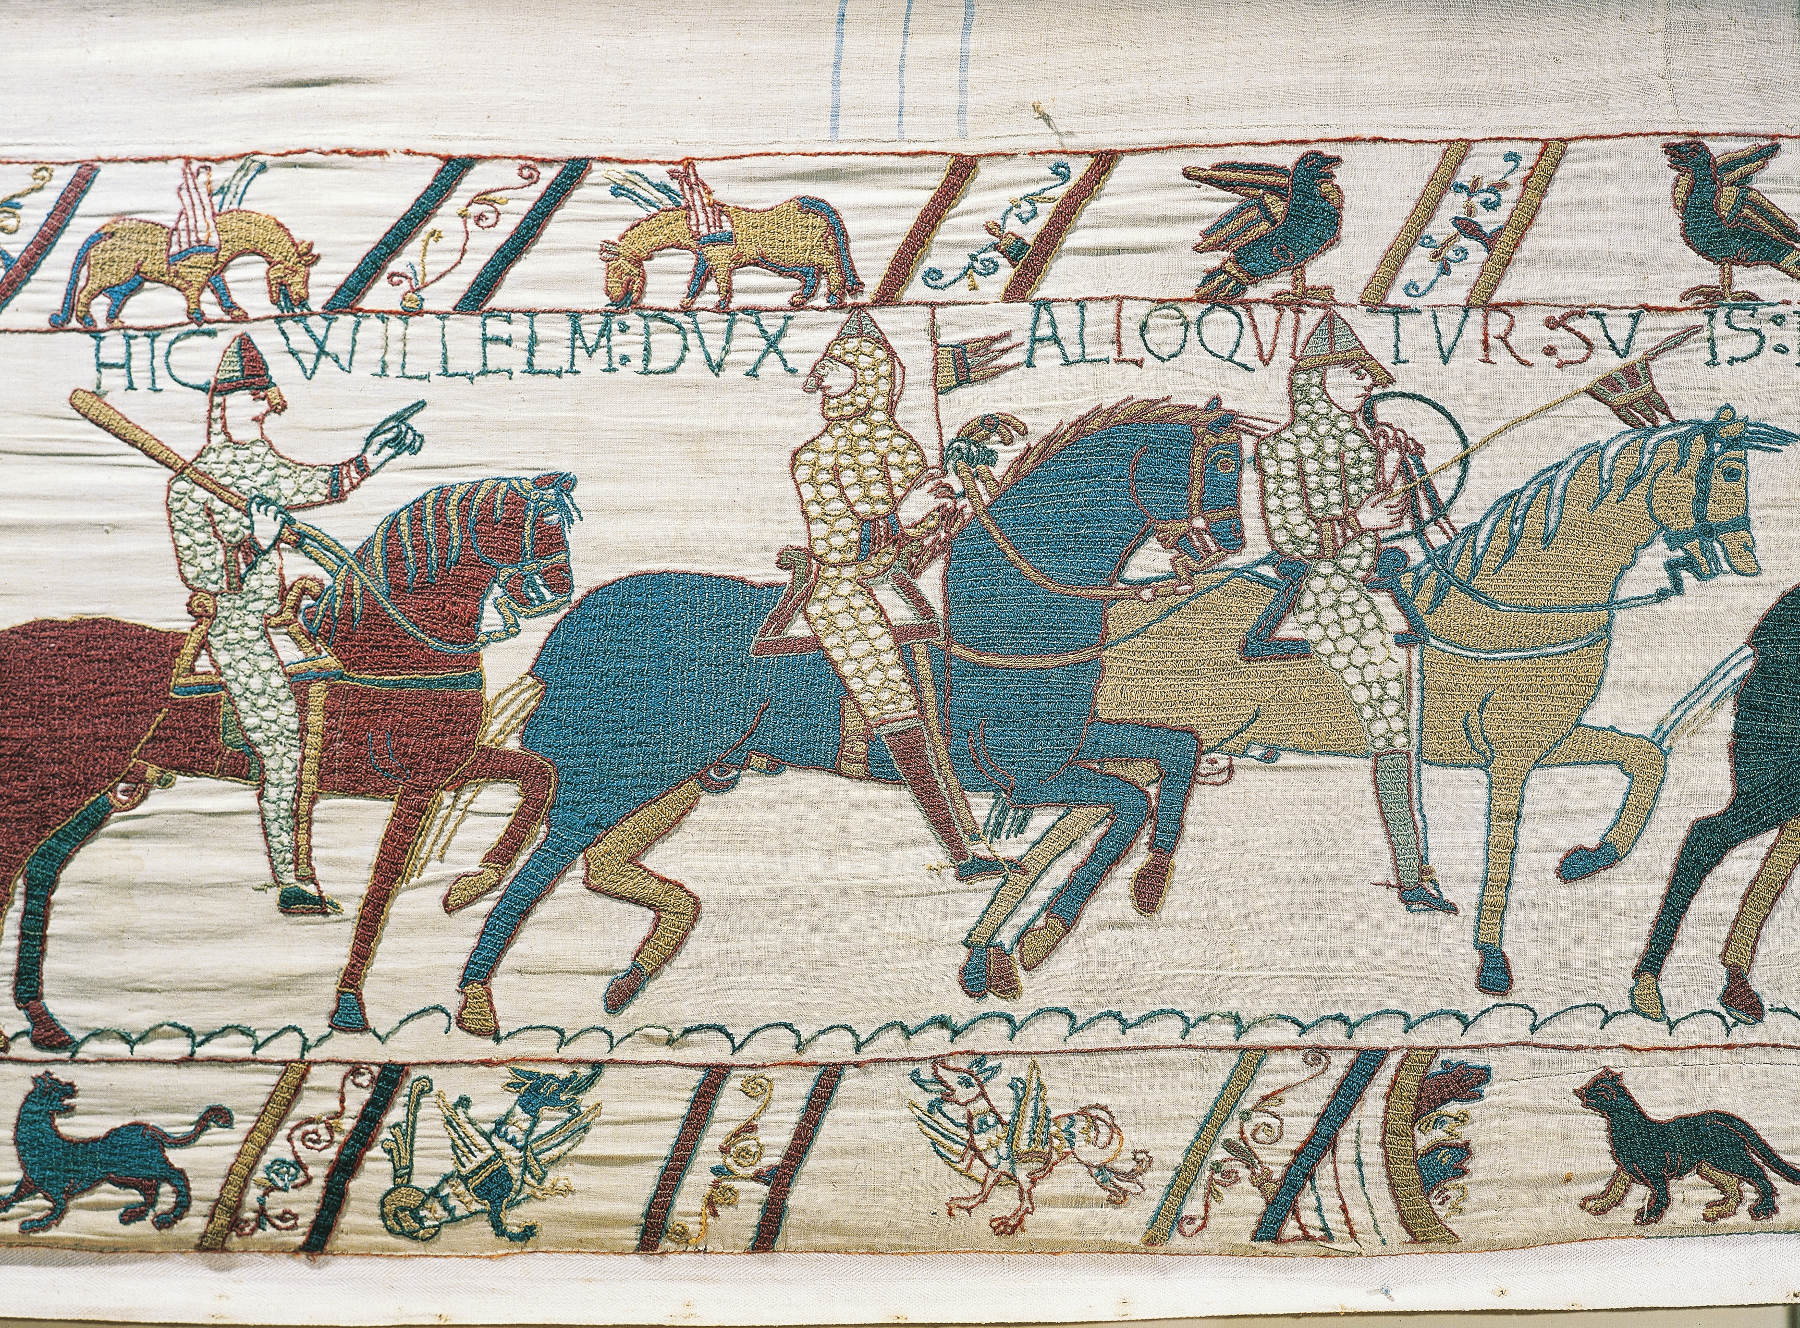 HIC WILLELM: DVX ALLOQVITVR: SVIS: